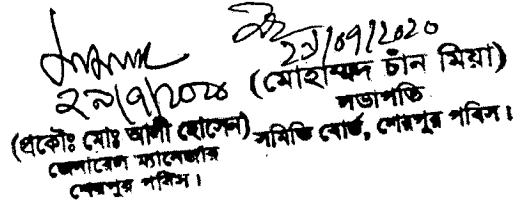 ২৯/০৭/২০২০
(প্রকৌঃ মোঃ আলী হোসেন)
জেনারেল ম্যানেজার
শেরপুর পবিস।
২৯/০৭/২০২০
(মোহাম্মদ চাঁন মিয়া)
সভাপতি
সমিতি বোর্ড, শেরপুর পবিস।